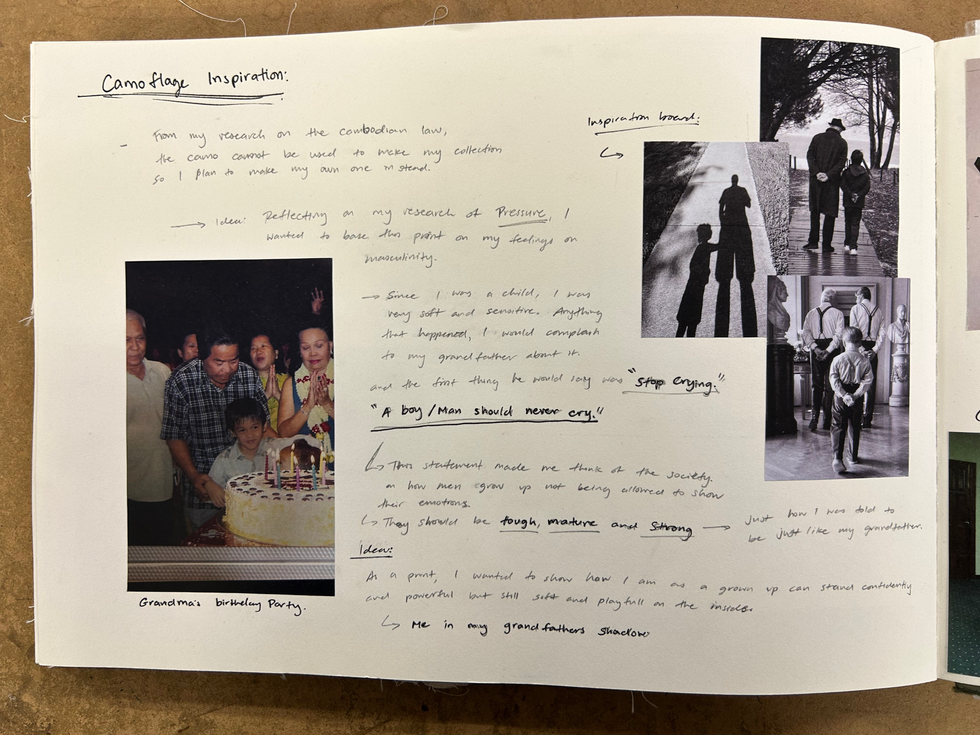 Camoflage Inspiration:
- From my research on the combodian law,
the camo cannot be used to make my collection
so I plan to make my own one instead.
→ Idea: Reflecting on my research of Pressure, I
wanted to base this print on my feelings on
masculinity.
→ Since I was a child, I was
very soft and sensitive. Anything
that happened, I would complain
to my grandfather about it.
and the first thing he would say was "Stop Crying."
"A boy/Man should never cry."
↳ This statement made me think of the society.
on how men grow up not being allowed to show
their emotions.
↳ They should be tough, mature and Strong → Just how I was told to
be just like my grandfather.
Idea:
As a print, I wanted to show how I am as a grown up can stand confidently
and powerful but still soft and playfull on the insides.
↳ Me in my grandfathers shadow
Inspiration board:
↳
Grandma's birthday Party.